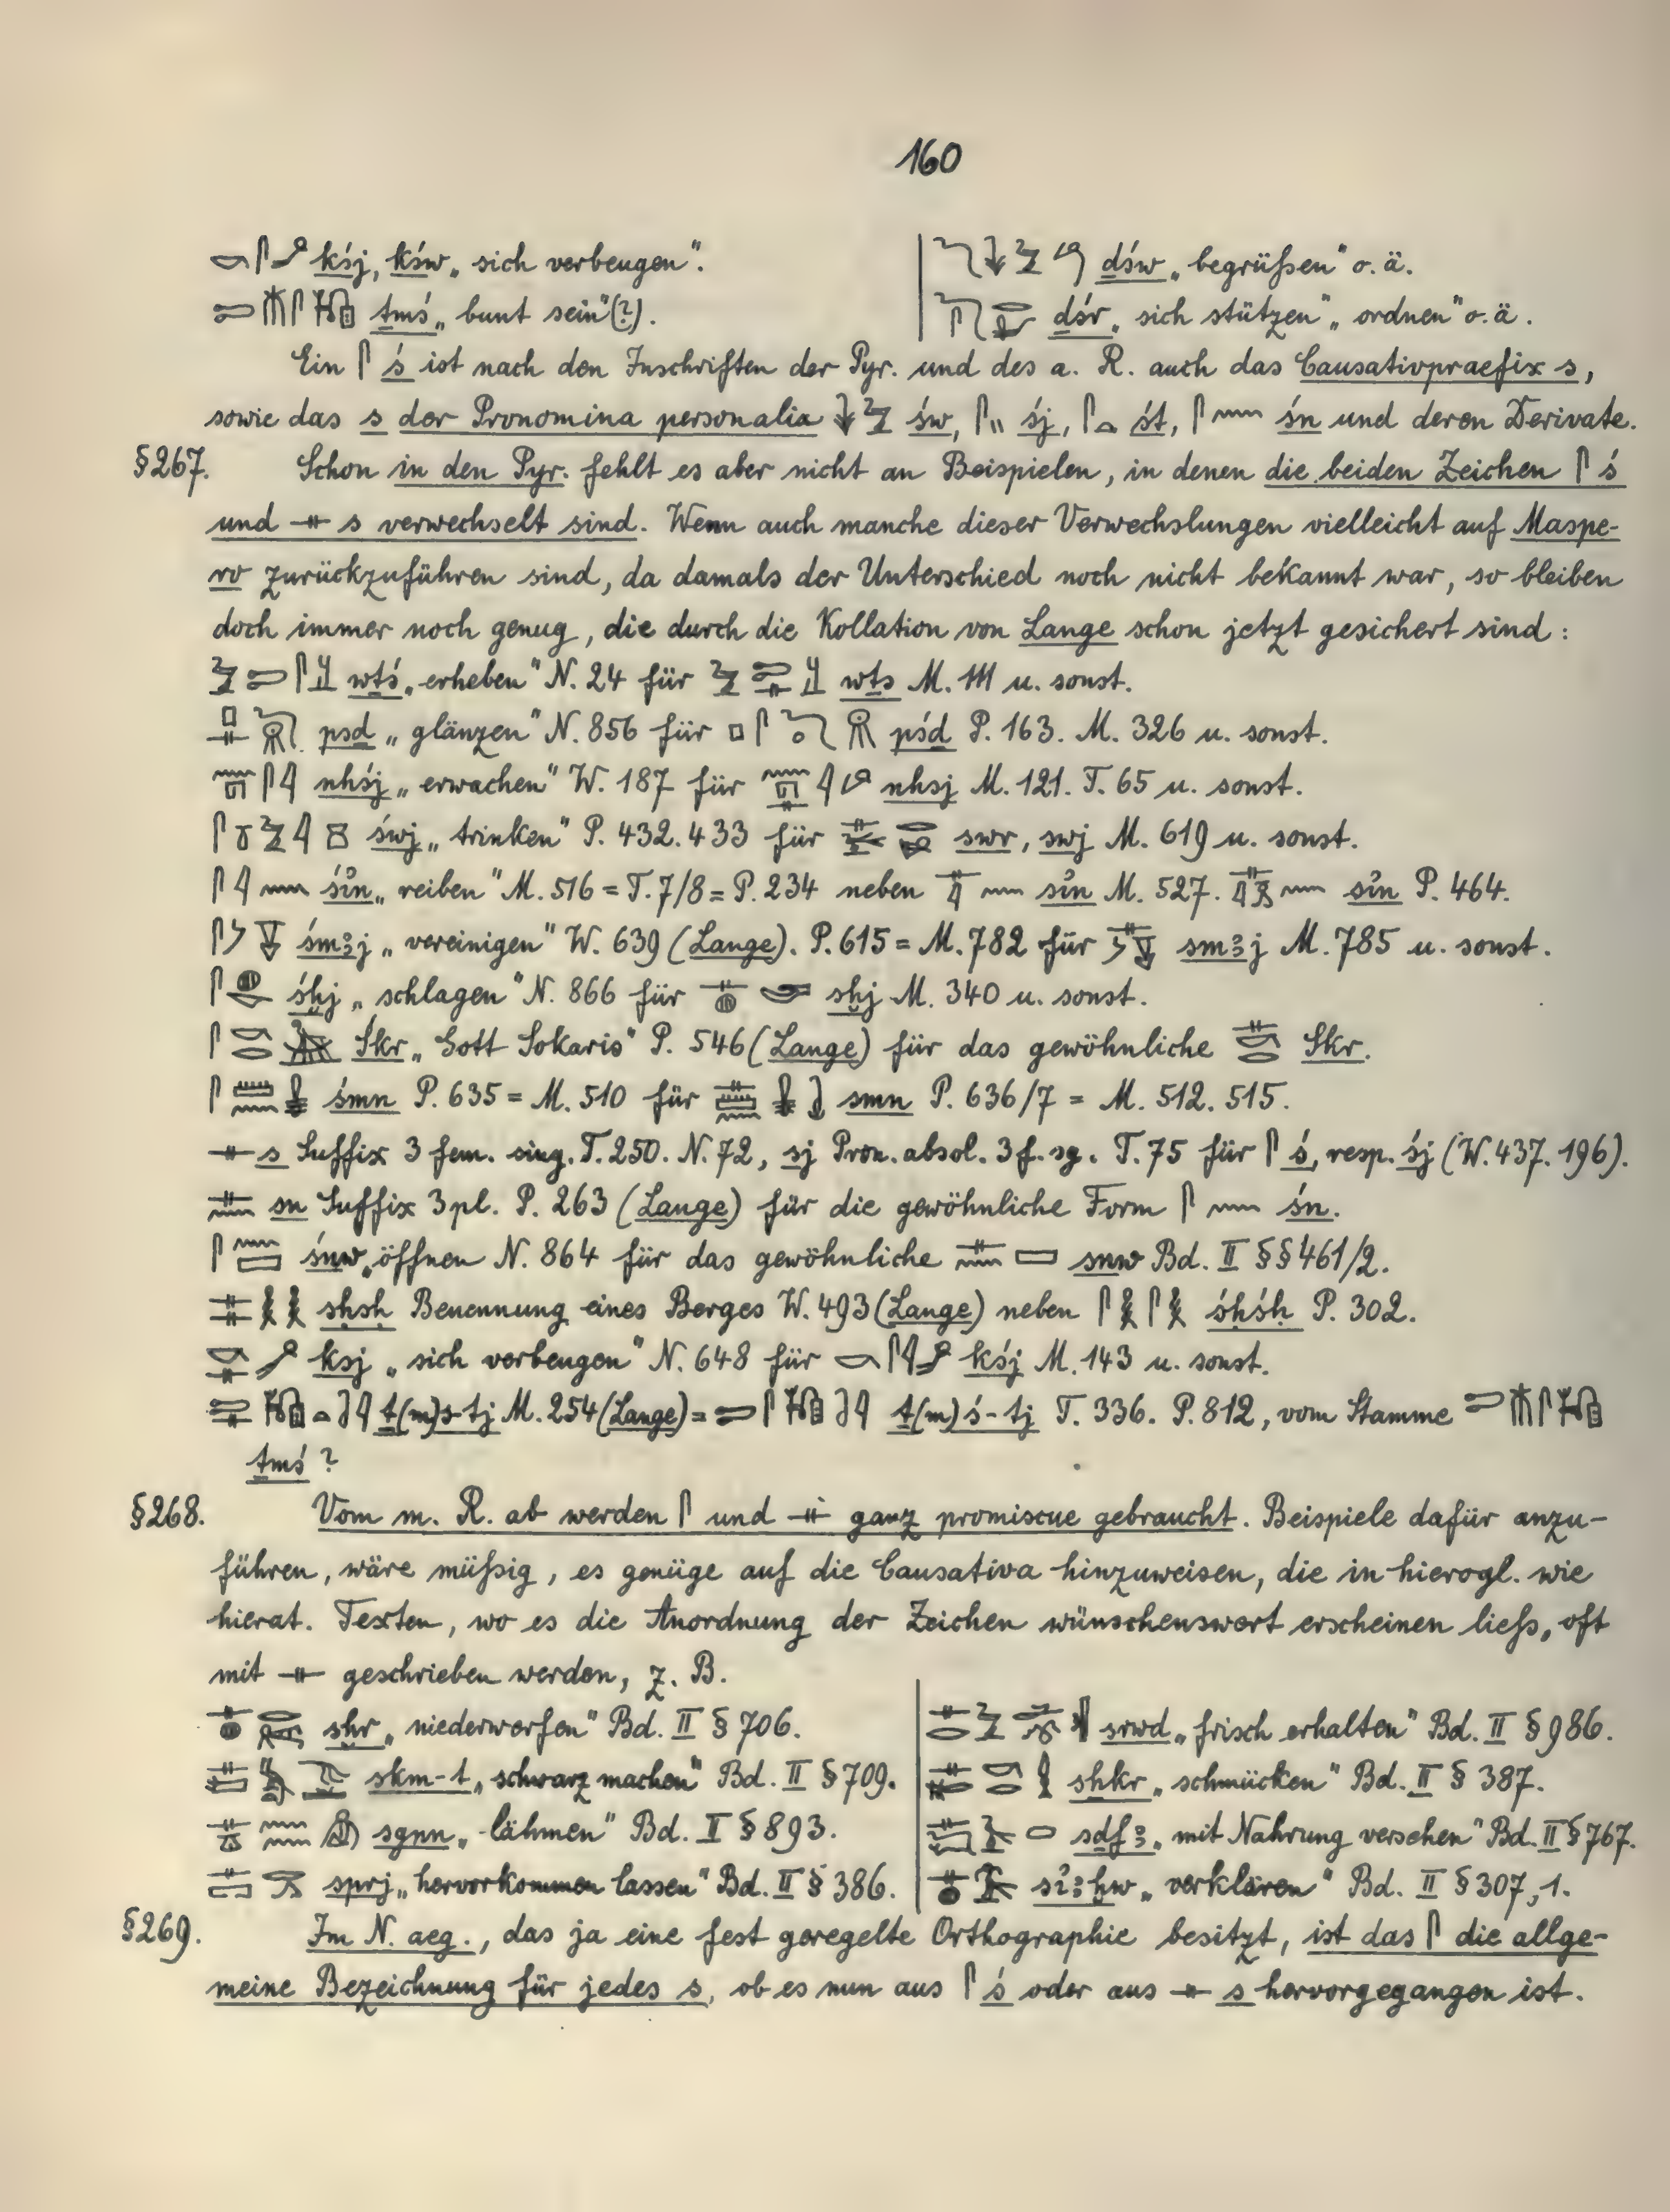 160
𓎡𓋴 kśj, kśw „sich verbeugen".
ṯmś „bunt sein"(?).
dśw „begrüßen" o. ä.
dśr „sich stützen" „ordnen" o. ä.
Ein 𓋴 ś ist nach den Inschriften der Pyr. und des a. R. auch das Causativpraefix s,
sowie das s der Pronomina personalia 𓇓𓅱 św, 𓋴𓏭 śj, 𓋴𓏏 śt, 𓋴𓈖 śn und deren Derivate.
§267. Schon in den Pyr. fehlt es aber nicht an Beispielen, in denen die beiden Zeichen 𓋴 ś
und 𓊃 s verwechselt sind. Wenn auch manche dieser Verwechslungen vielleicht auf Maspe-
ro zurückzuführen sind, da damals der Unterschied noch nicht bekannt war, so bleiben
doch immer noch genug, die durch die Kollation von Lange schon jetzt gesichert sind:
wṯś „erheben" N. 24 für wṯs M. 111 u. sonst.
psd „glänzen" N. 856 für pśd P. 163. M. 326 u. sonst.
nhśj „erwachen" W. 187 für nhsj M. 121. T. 65 u. sonst.
śwj „trinken" P. 432. 433 für swr, swj M. 619 u. sonst.
𓋴𓇋𓈖 śỉn „reiben" M. 516 = T. 7/8 = P. 234 neben sỉn M. 527. sỉn P. 464.
śmꜣj „vereinigen" W. 639 (Lange). P. 615 = M. 782 für smꜣj M. 785 u. sonst.
śḫj „schlagen" N. 866 für sḫj M. 340 u. sonst.
Śkr „Gott Sokaris" P. 546 (Lange) für das gewöhnliche Skr.
śmn P. 635 = M. 510 für smn P. 636/7 = M. 512. 515.
𓊃 s Suffix 3 fem. sing. T. 250. N. 72, sj Pron. absol. 3 f. sg. T. 75 für 𓋴 ś, resp. śj (W. 437. 196).
𓊃𓈖 sn Suffix 3 pl. P. 263 (Lange) für die gewöhnliche Form 𓋴𓈖 śn.
𓋴𓈖𓈙 śnw „öffnen N. 864 für das gewöhnliche 𓊃𓈖𓈙 snw Bd. II §§ 461/2.
𓊃𓊃𓎛𓎛 sḥsḥ Benennung eines Berges W. 493 (Lange) neben 𓋴𓎛𓋴𓎛 śḥśḥ P. 302.
ksj „sich verbeugen" N. 648 für kśj M. 143 u. sonst.
ṯ(m)s-tj M. 254 (Lange) = ṯ(m)ś-tj T. 336. P. 812, vom Stamme
ṯmś?
§268. Vom m. R. ab werden 𓋴 und 𓊃 ganz promiscue gebraucht. Beispiele dafür anzu-
führen, wäre müßig, es genüge auf die Causativa hinzuweisen, die in hierogl. wie
hierat. Texten, wo es die Anordnung der Zeichen wünschenswert erscheinen ließ, oft
mit 𓊃 geschrieben werden, z. B.
sḫr „niederwerfen" Bd. II § 706.
skm-t „schwarz machen" Bd. II § 709.
sgnn „lähmen" Bd. I § 893.
sprj „hervorkommen lassen" Bd. II § 386.
srwd „frisch erhalten" Bd. II § 986.
shkr „schmücken" Bd. II § 387.
sdfꜣ „mit Nahrung versehen" Bd. II § 767.
sỉꜣḫw „verklären" Bd. II § 307,1.
§269. Im N. aeg., das ja eine fest geregelte Orthographie besitzt, ist das 𓋴 die allge-
meine Bezeichnung für jedes s, ob es nun aus 𓋴 ś oder aus 𓊃 s hervorgegangen ist.